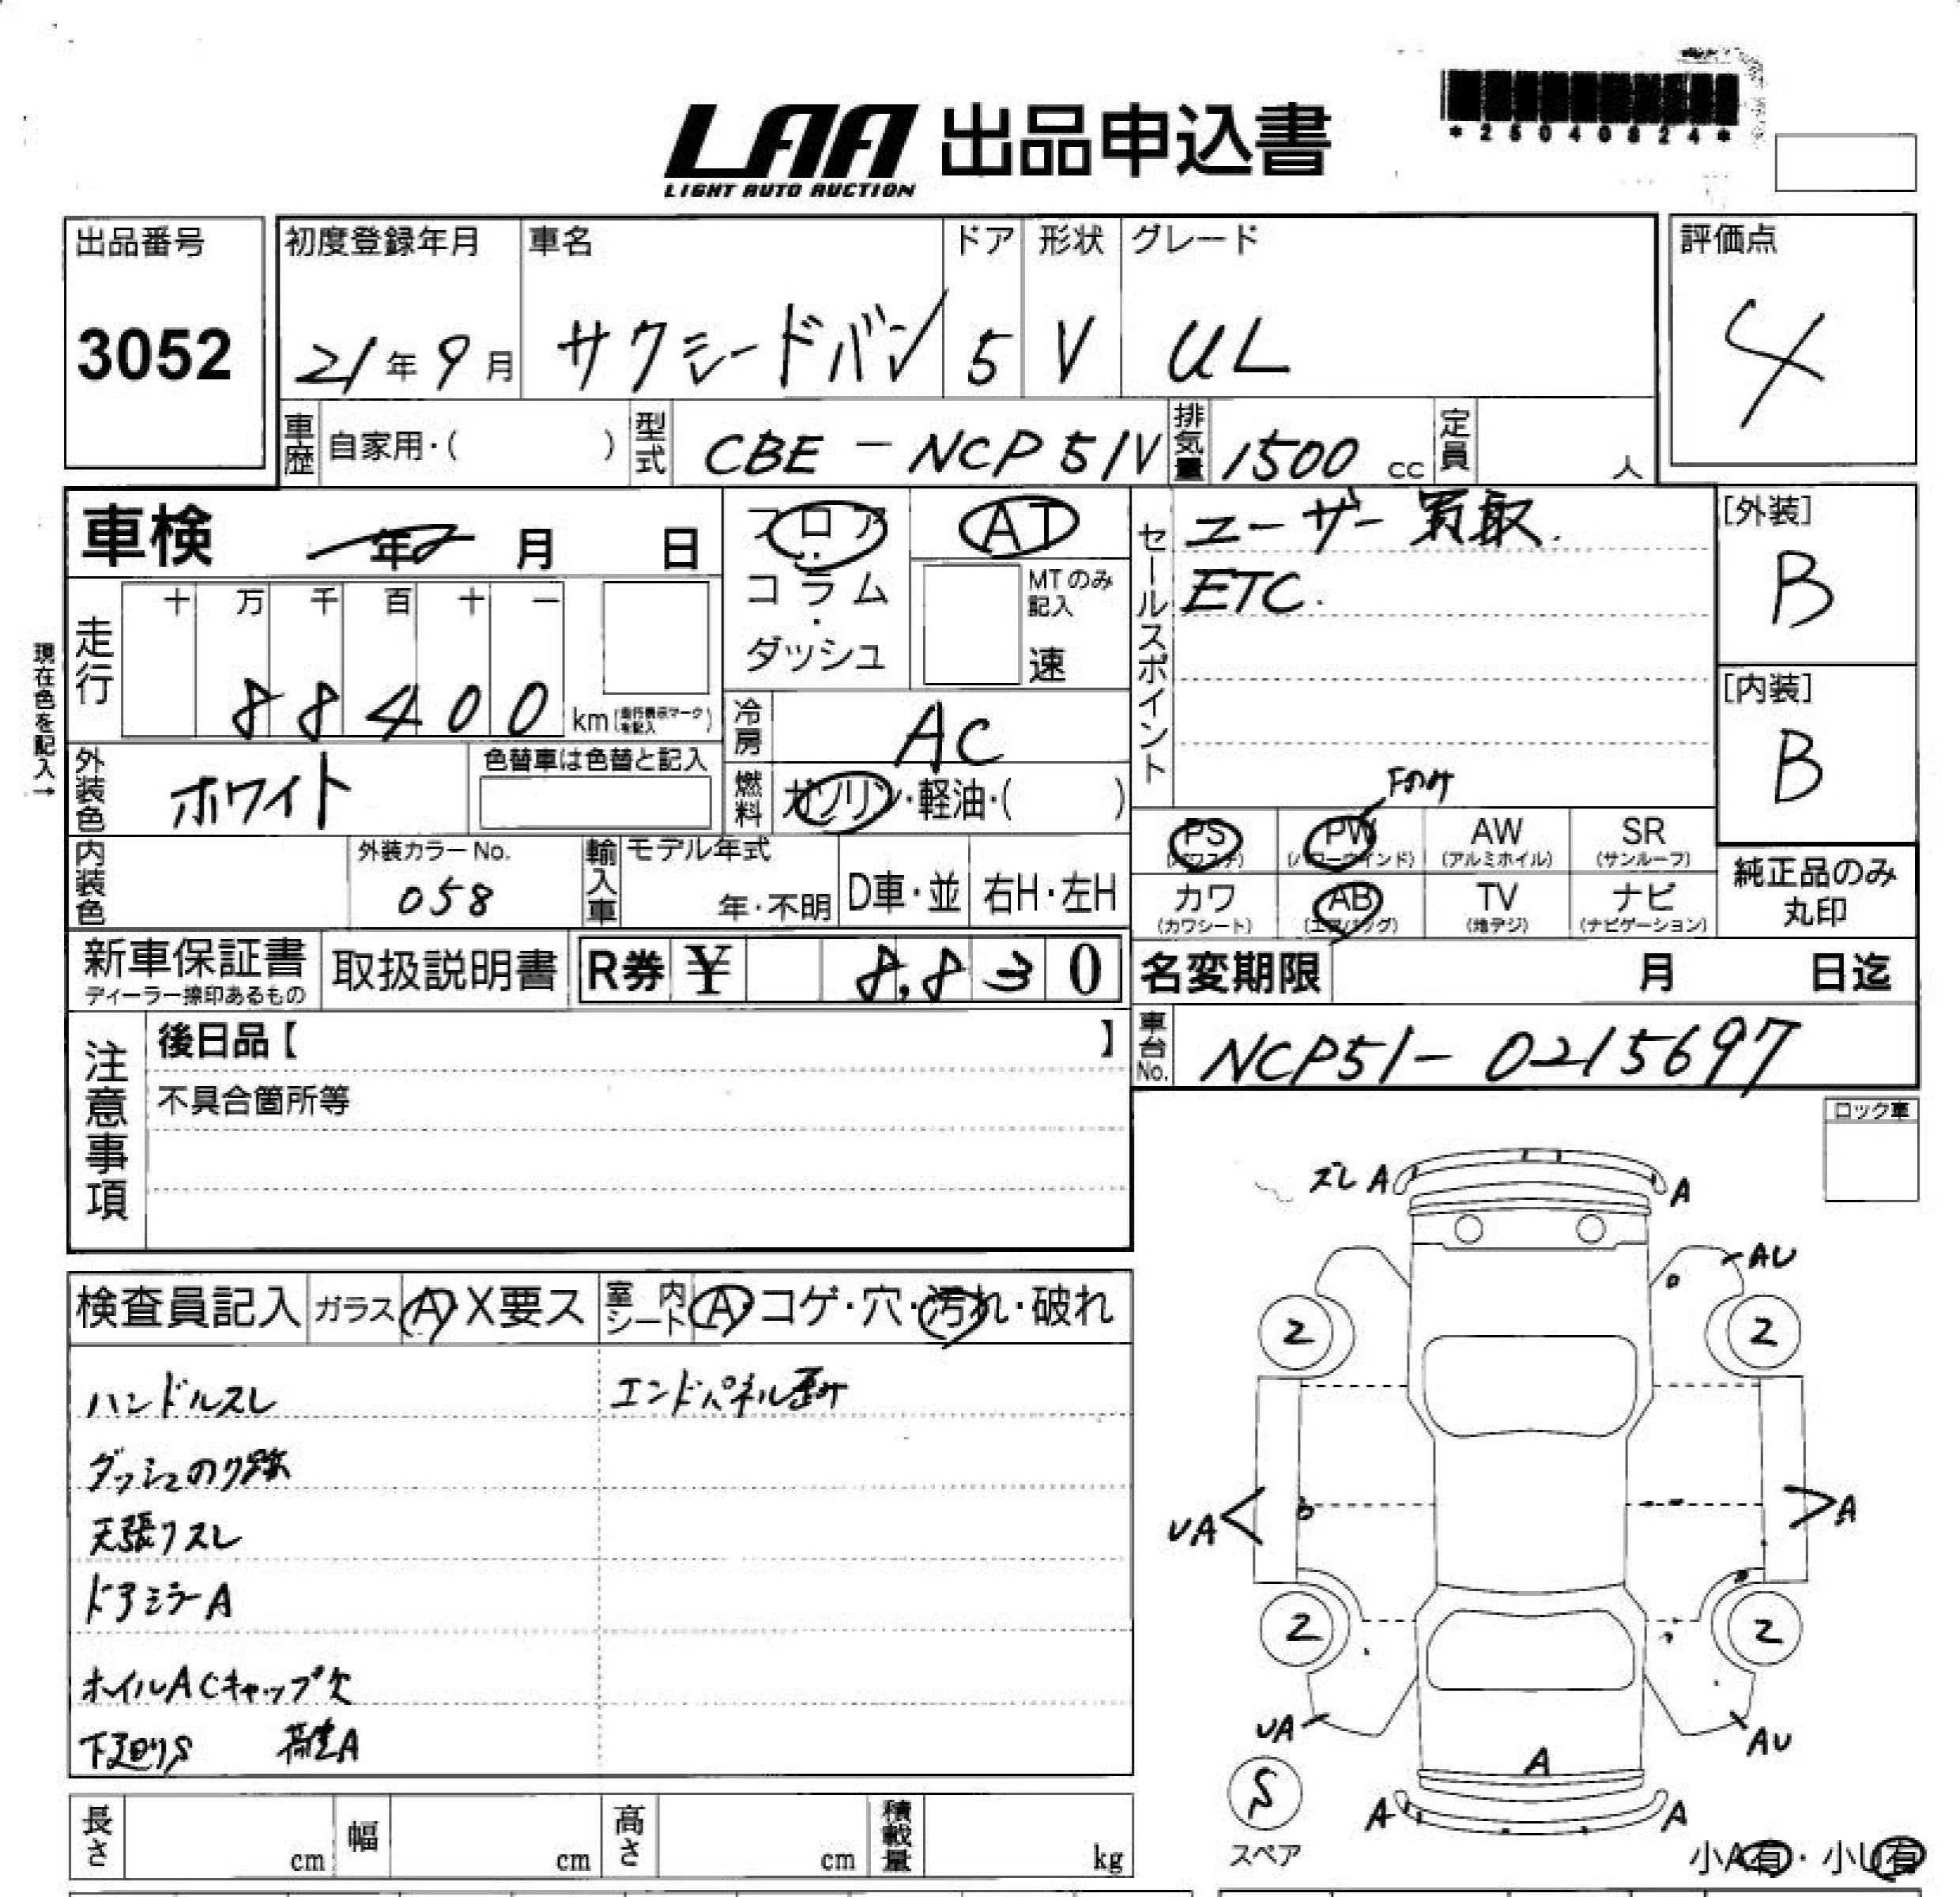 LAA 出品申込書
LIGHT AUTO AUCTION
*25040824*
出品番号
3052
初度登録年月 車名 ドア 形状 グレード
21年9月 サクシードバン 5 V UL
評価点
4
車歴 自家用・( ) 型式 CBE-NCP51V 排気量 1500 cc 定員 人
車検 年 月 日
フロア・コラム・ダッシュ
AT
MTのみ記入
速
セールスポイント
ユーザー買取.
ETC.
[外装]
B
[内装]
B
現在色を記入→
走行
十 万 千 百 十 一
88400 km(走行表示マークを記入)
冷房 AC
外装色 ホワイト
色替車は色替と記入
燃料 ガソリン・軽油・( )
Fのみ
PS PW AW SR
(パワステ) (パワーウインド) (アルミホイル) (サンルーフ)
カワ AB TV ナビ
(カワシート) (エアバッグ) (地デジ) (ナビゲーション)
純正品のみ
丸印
内装色
外装カラーNo.
058
輸入車 モデル年式
年・不明 D車・並 右H・左H
新車保証書
ディーラー捺印あるもの
取扱説明書
R券 ¥ 8,830
名変期限 月 日迄
注意事項
後日品【 】
不具合箇所等
車台No. NCP51-0215697
ロック車
検査員記入 ガラス A・X要ス 室内シート A・コゲ・穴・汚れ・破れ
ハンドルスレ
エンドパネル歪み
ダッシュのり跡
天張リスレ
ドアミラーA
ホイルACキャップ欠
下廻りS 荷室A
ズレ A A
AU
2 2
UA A
2 2
UA AU
A
S
スペア
A A
小A有・小U有
長さ cm 幅 cm 高さ cm 積載量 kg